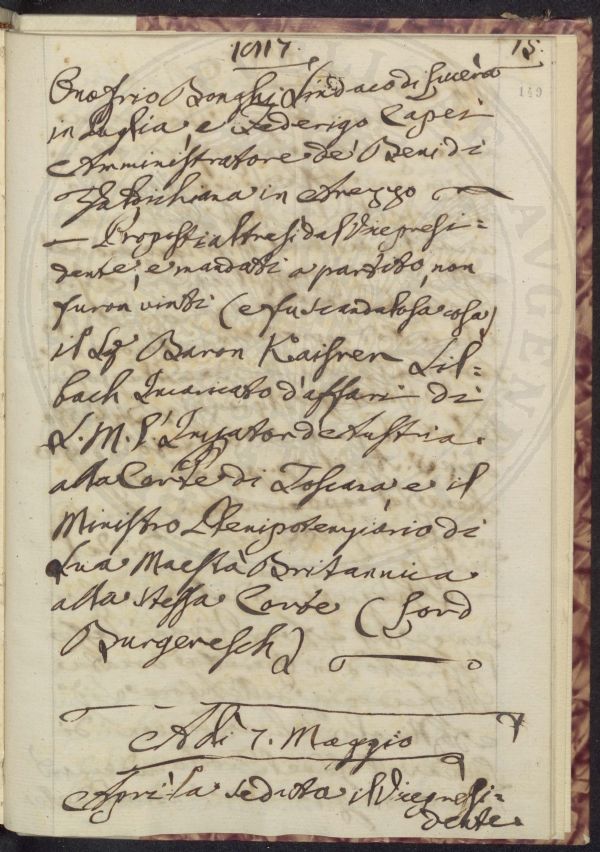 1817. 15.
149
Onofrio Bonghi, Sindaco di Lucera
in Puglia, e Federigo Capei
Amministratore de' Beni di
Valdichiana in Arezzo
— Propostialtresi dal Vicepresi=
dente, e mandati a partito, non
furon vinti (e fu scandalosa cosa)
il Baron Kaisren Lil=
bach Incaricato d'affari di
S. M. l'Imp.ator d'Austria
alla Corte di Toscana e il
Ministro Plenipotenziario di
Sua Maestà Britannica
alla stessa Corte (Lord
Burgeresch)
Adì 7. Maggio
Aprì la seduta il Vicepresi=
dente